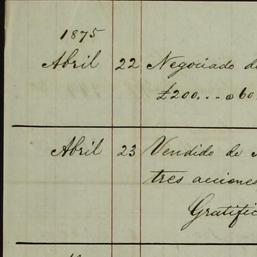 1875
Abril 22 Negociado de
£200... a 60
Abril 23 Vendido de
tres acciones
Gratific